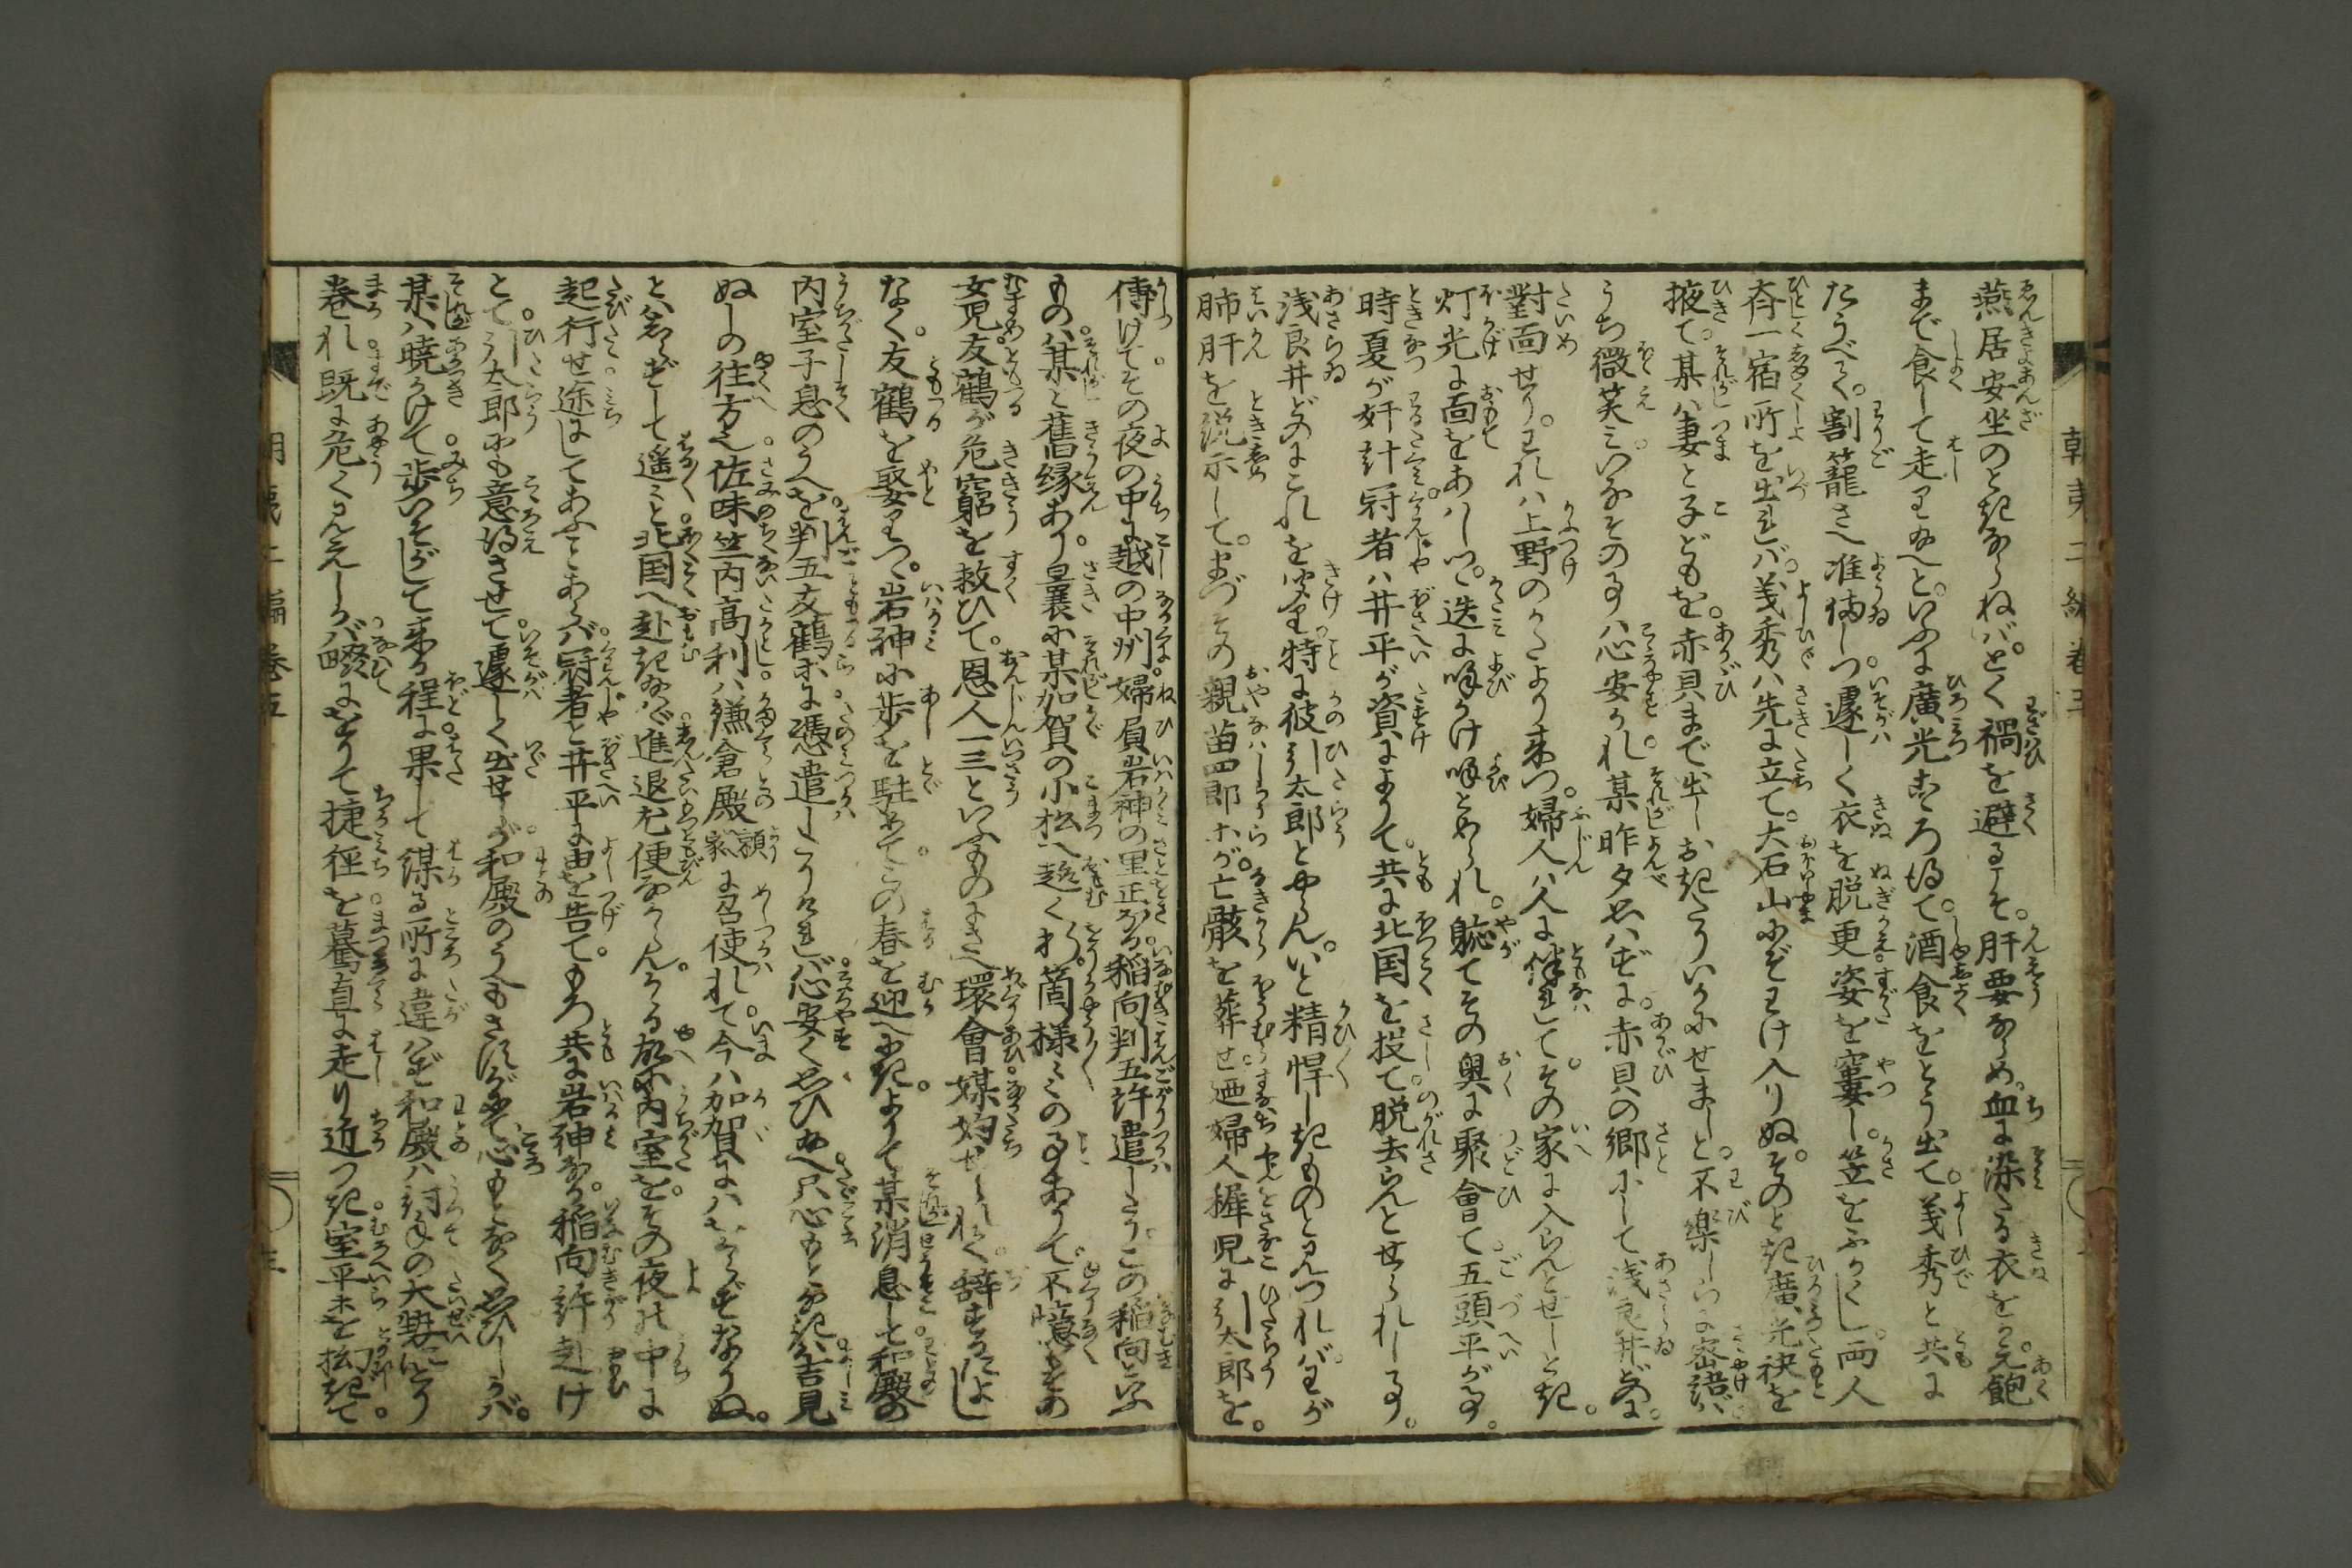 燕居安坐のときならねば。とく禍を避るぞ。肝要ならめ。血に染たる衣をかえ。飽
まで食して走り給へと。いふに廣光こゝろ得て。酒食をとう出て。義秀と共に
たうべて。割籠さへ准備しつ。遽しく衣を脱更姿を窶し。笠をふかくし。両人
斉一宿所を出れば。義秀は先に立て。大石山にぞわけ入りぬ。そのとき廣光袂を
掖て。某は妻と子どもを。赤貝まで出しおきたりいかにせまし。と。不楽しらに密語ば
うち微笑み。いなその事は心安かれ某昨夕思はずに。赤貝の郷にして浅良井どのに。
對面せり。われは上野のかたより来つ。婦人は人に伴れて。その家に入らんとせしとき。
灯光に面をあはしつ。迭に呼かけ呼とめられ。軈てその奥に聚會て。五頭平が事。
時夏が奸計冠者は井平が資によりて。共に北国を投て脱去らんとせられし事。
浅良井どのにこれを聞り特に彼引太郎とやらん。いと精悍しきものと見つれば。わが
肺肝を説示して。まづその親苗四郎等が。亡骸を葬せ。廼婦人稚児に引太郎を。
傳けてその夜の中に越の中州。婦負岩神の里正なる。稲向判五許遣したり。この稲向といふ
ものは。某と舊縁あり。曩に某加賀の小松へ趣く折。箇様々の事ありて。不憶もその
女児。友鶴が危窮を救ひて。恩人一三といふものにさへ環會媒妁せられて。辞するによし
なく。友鶴を娶りつ。岩神に歩を駐めてこの春を迎へにき。よりて某消息して和殿の
内室子息のうへを。判五友鶴等に憑遣したりければ。心安く思ひ給へ。只心もとなきは吉見
ぬしの往方也。佐味竺内高利は。鎌倉殿頼家に召使れて。今は加賀には在らずなりぬ。
とは知らずして遙々と北国へ赴き給はゞ。進退尤便なからん。かゝる故に内室を。その夜の中に
起行せ途にしてあふことあらば。冠者と井平に由を告て。もろ共に岩神なる。稲向許赴け
とて。引太郎にも意得させて。遽しく出せしが。和殿のうへもさすがにて。心もとなく思ひしかば。
某は暁かけて。歩いそがして来る程に。果して謀る所に違はず。和殿は討手の大勢にとり
巻れ。既に危く見えしかば。畷にをりて捷径を。驀直に走り近づき。室平等を拉ぎて。